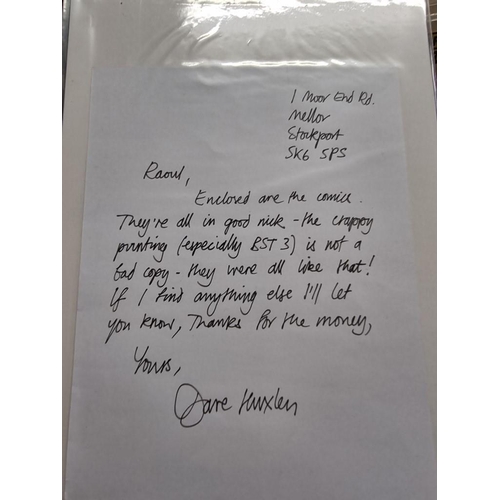 1 Moor End Rd.
Mellor
Stockport
SK6 5PS
Raoul,
Enclosed are the comics.
They're all in good nick - the crappy
printing (especially BST 3) is not a
bad copy - they were all like that!
If I find anything else I'll let
you know, Thanks for the money,
Yours,
Dave Huxley